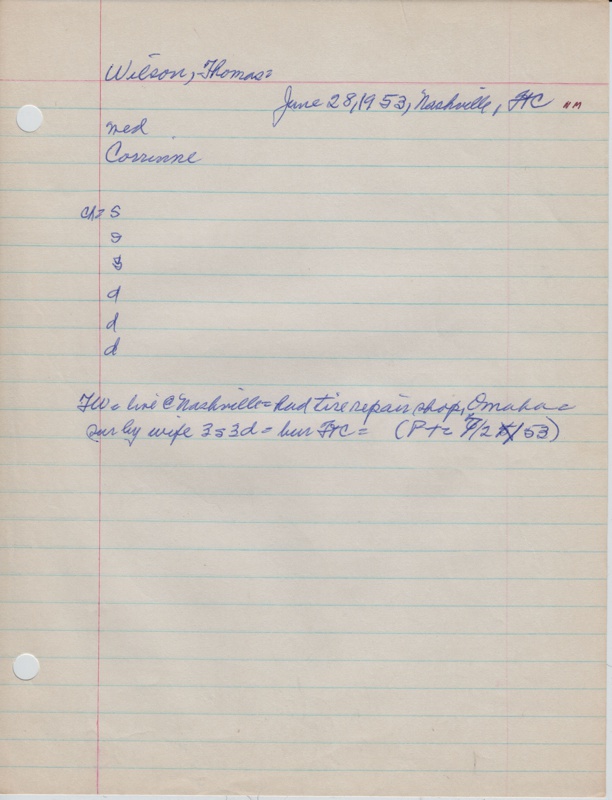 Wilson, Thomas=
June 28, 1953, Nashville, FtC "M
med
Corrinne
ch= S
S
S
d
d
d
TW= live @ Nashville= had tire repair shop, Omaha=
sur by wife 3s 3d = bur FtC = (P+= 7/2 /53)